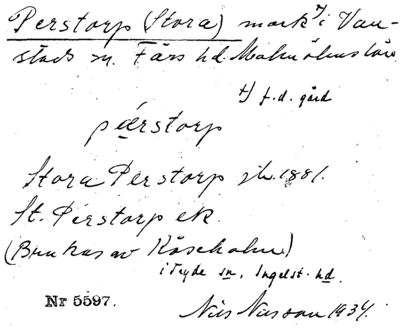 Perstorp (Stora) mark †) i Van-
stads sn. Färs hd. Malmöhus län.
†) f.d. gård
péerstorp
Stora Perstorp jb. 1881.
St. Perstorp ek.
(Brukas av Kåseholm)
i Tryde sn, Ingelst. hd.
Nr 5597.
Nils Nilsson 1934.